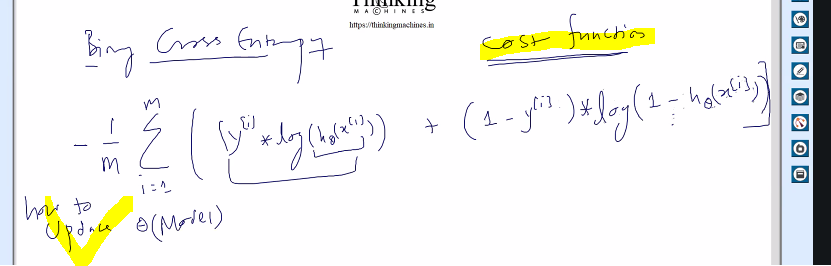 Thinking
MACHINES
https://thinkingmachines.in
Binary Cross Entropy
cost function
- 1/m Σ_{i=1}^{m} ( (y^{[i]} * log(h_θ(x^{[i]})) + (1 - y^{[i]}) * log(1 - h_θ(x^{[i]})) ]
how to
Update θ(Model)